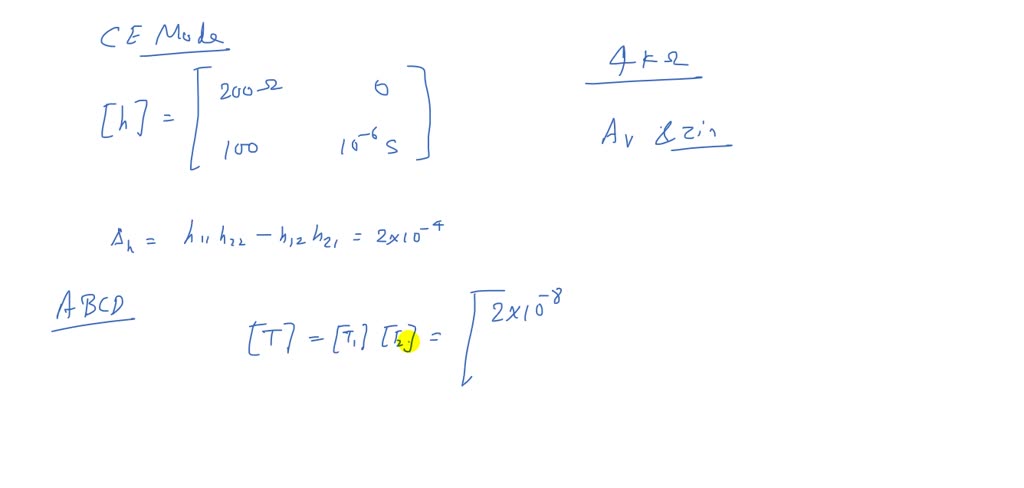 CE Mode
4 kΩ
[h] = [ 200Ω 0
100 10⁻⁶ S ]
Av & zin
Δh = h11 h22 - h12 h21 = 2×10⁻⁴
ABCD
[T] = [T1] [T2] = [ 2×10⁻⁸